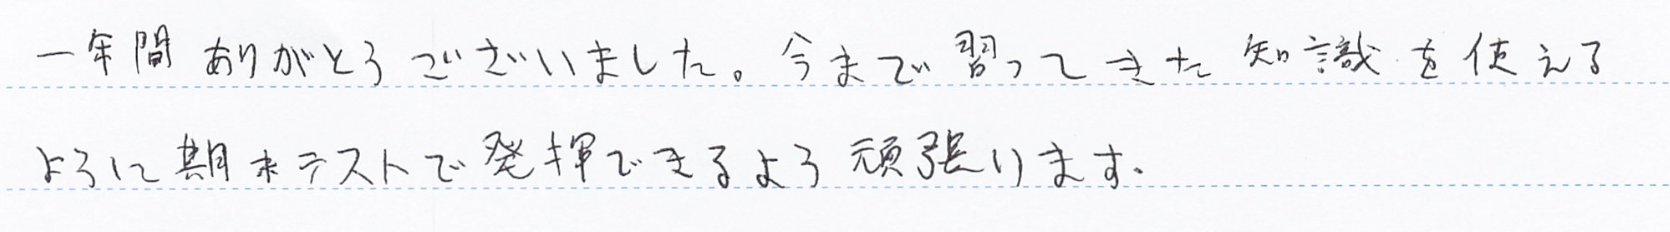 一年間ありがとうございました。今まで習ってきた知識を使える
ように期末テストで発揮できるよう頑張ります.